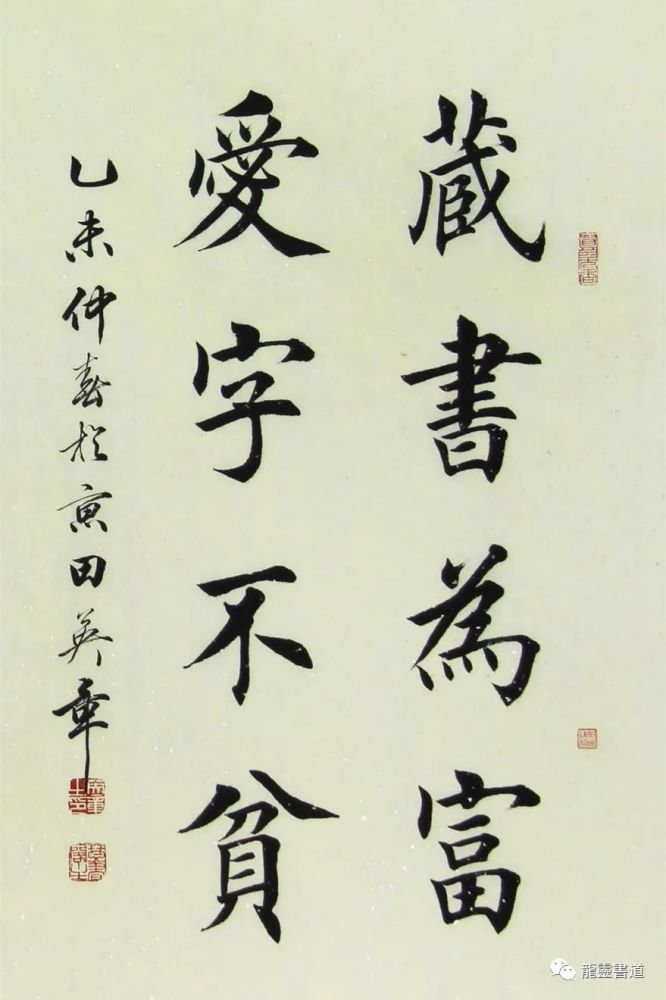 藏書為富
愛字不貧
乙未仲春於京田英章
龍靈書道